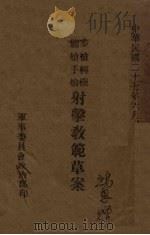 中華民國二十七年六月
步槍輕機
關槍手槍
射擊教範草案
軍事委員會
部印